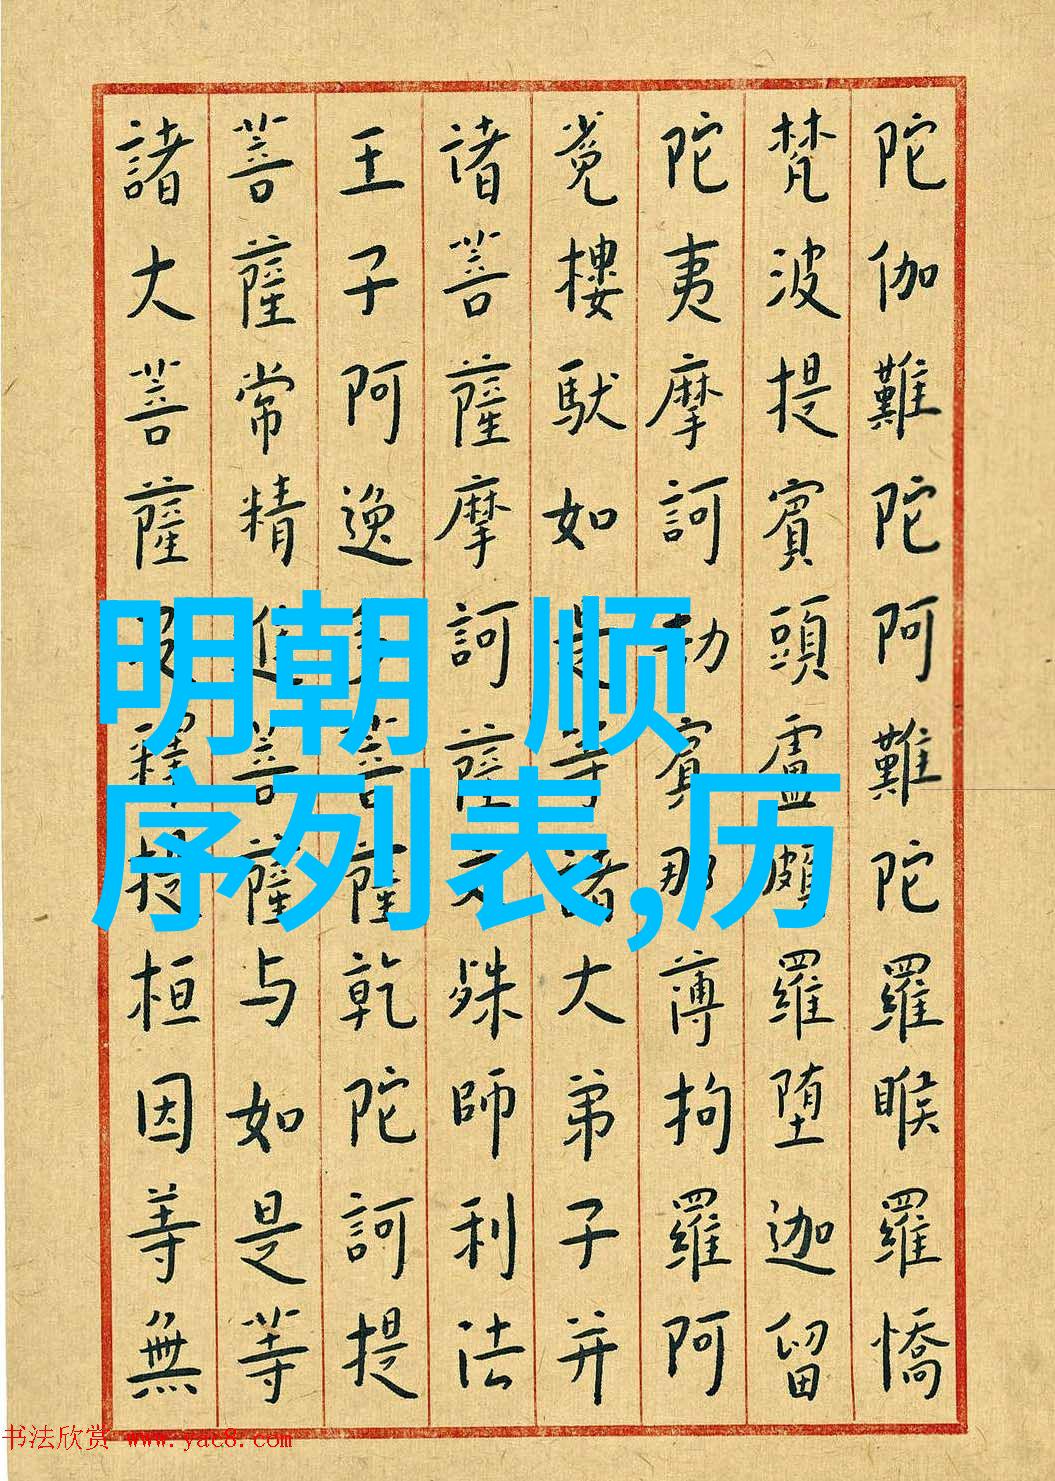 陀伽難陀阿難陀羅睺羅憍
梵波提賓頭盧頗羅堕迦留
陀夷摩訶劫賓那薄拘羅阿
樓馱如是等諸大弟子并
诸菩薩摩訶薩文殊師利法
王子阿逸多菩薩乾陀訶提
菩薩常精進菩薩与如是等
諸大菩薩及釋提桓因等無
明朝 顺
序列表,历
书法欣赏 www.yac8.com